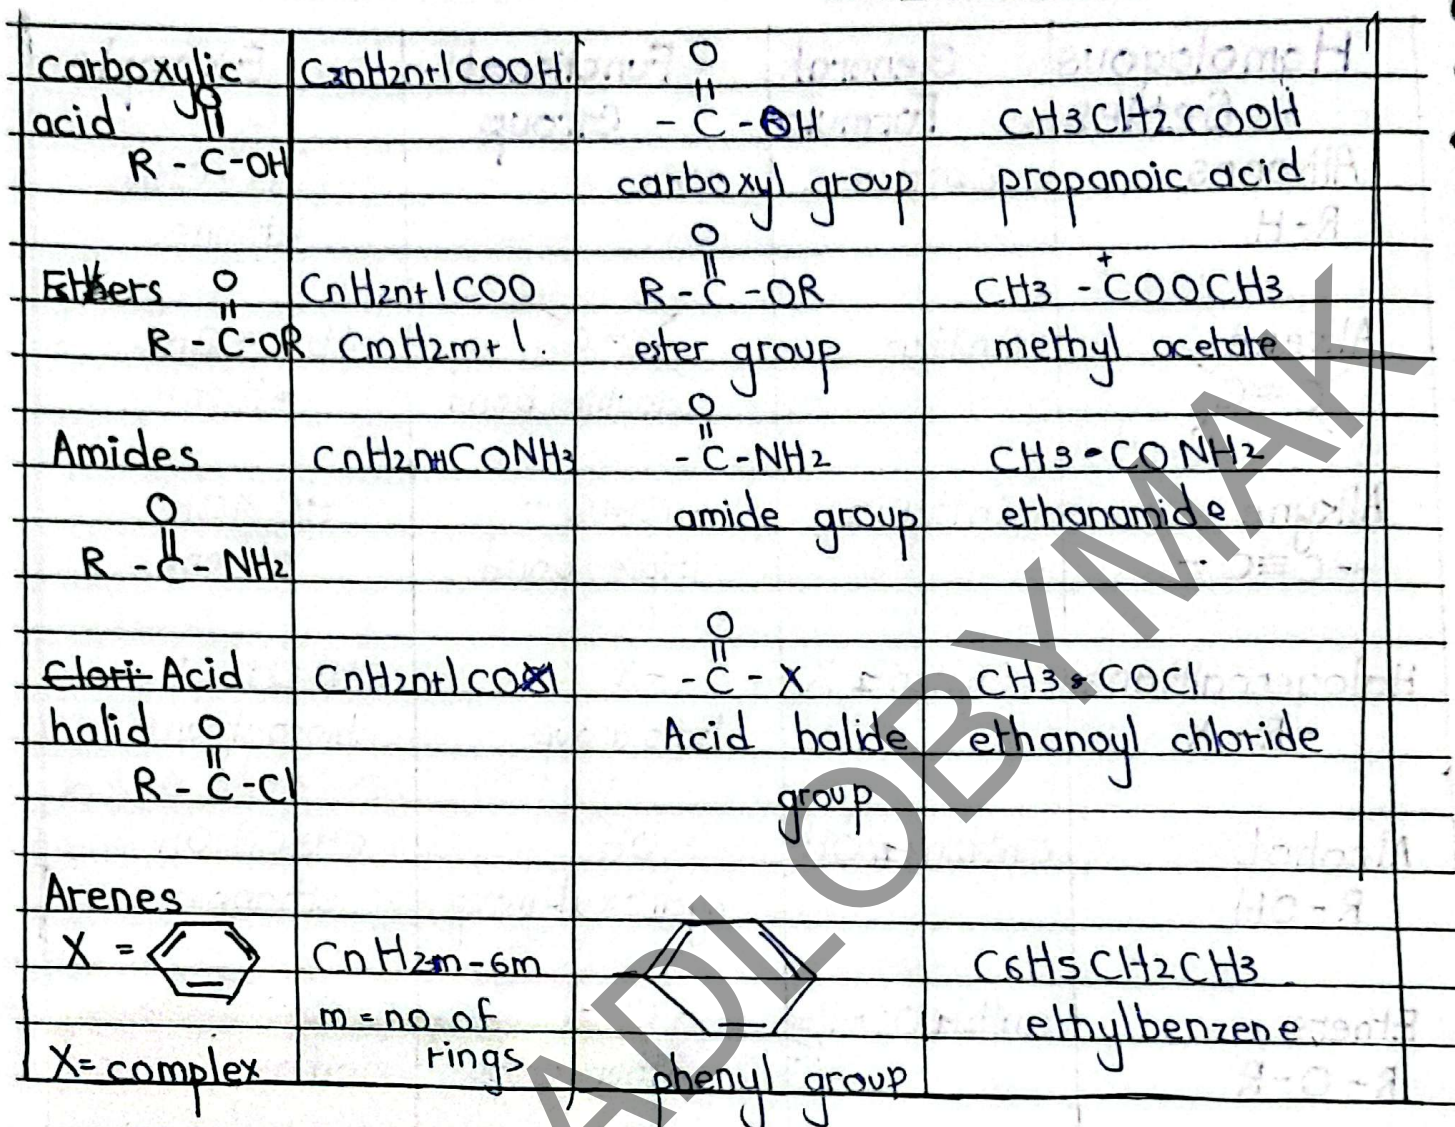 carboxylic
acid
O
R - C - OH
CnH2n+1COOH.
O
- C - OH
carboxyl group
CH3CH2COOH
propanoic acid
Esters
O
R - C - OR
CnH2n+1COO
CmH2m+1.
O
R - C - OR
ester group
CH3 - COOCH3
+
methyl acetate
Amides
O
R - C - NH2
CnH2n+1CONH3
O
- C - NH2
amide group
CH3 - CONH2
ethanamide
Clori Acid
halid
O
R - C - Cl
CnH2n+1COCl
O
- C - X
Acid halide
group
CH3 - COCl
ethanoyl chloride
Arenes
X =
X = complex
CnH2n-6m
m = no. of
rings
phenyl group
C6H5CH2CH3
ethylbenzene.
ADLOBYMAK